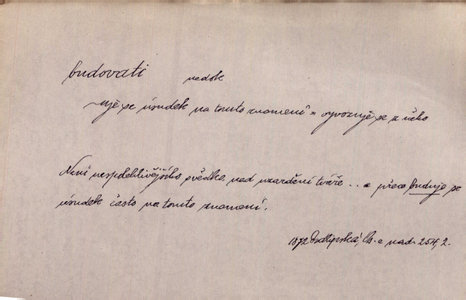 budovati nedok
-uje se úsudek na tomto znamení = vyvozuje se z něho
Není nespolehlivějšího svědka nad uzardění tváře... a přece buduje se
úsudek často na tomto znamení.
1872 Podlipská, 254, 2.